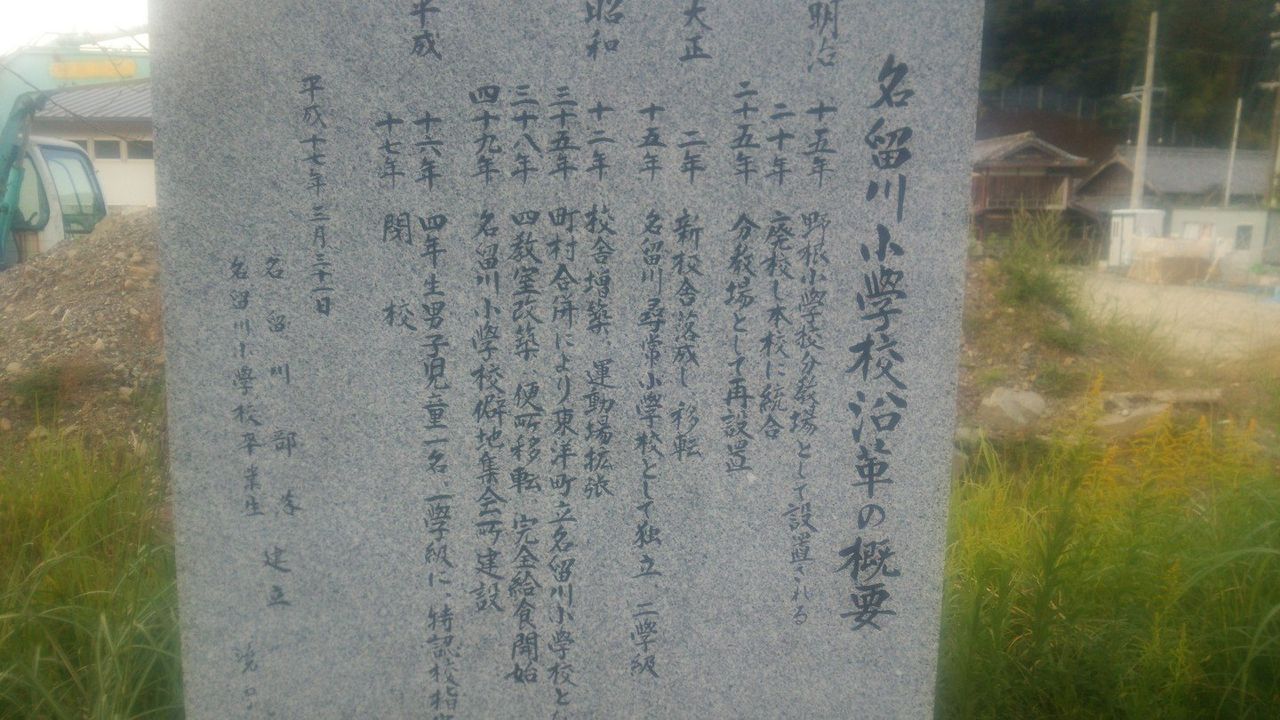 名留川小學校沿革の概要
明治 十五年 野根小學校分教場として設置される
二十年 廃校し本校に統合
二十五年 分教場として再設置
大正 二年 新校舎落成し移転
十五年 名留川尋常小學校として独立 二學級
昭和 十二年 校舎増築、運動場拡張
三十五年 町村合併により東洋町立名留川小學校とな
三十八年 四教室改築、便所移転 完全給食開始
四十九年 名留川小學校僻地集会所建設
平成 十六年 四年生男子児童一名、一學級に、特認校指
十七年 閉校
平成十七年三月三十一日
名留川部落 建立
名留川小學校卒業生